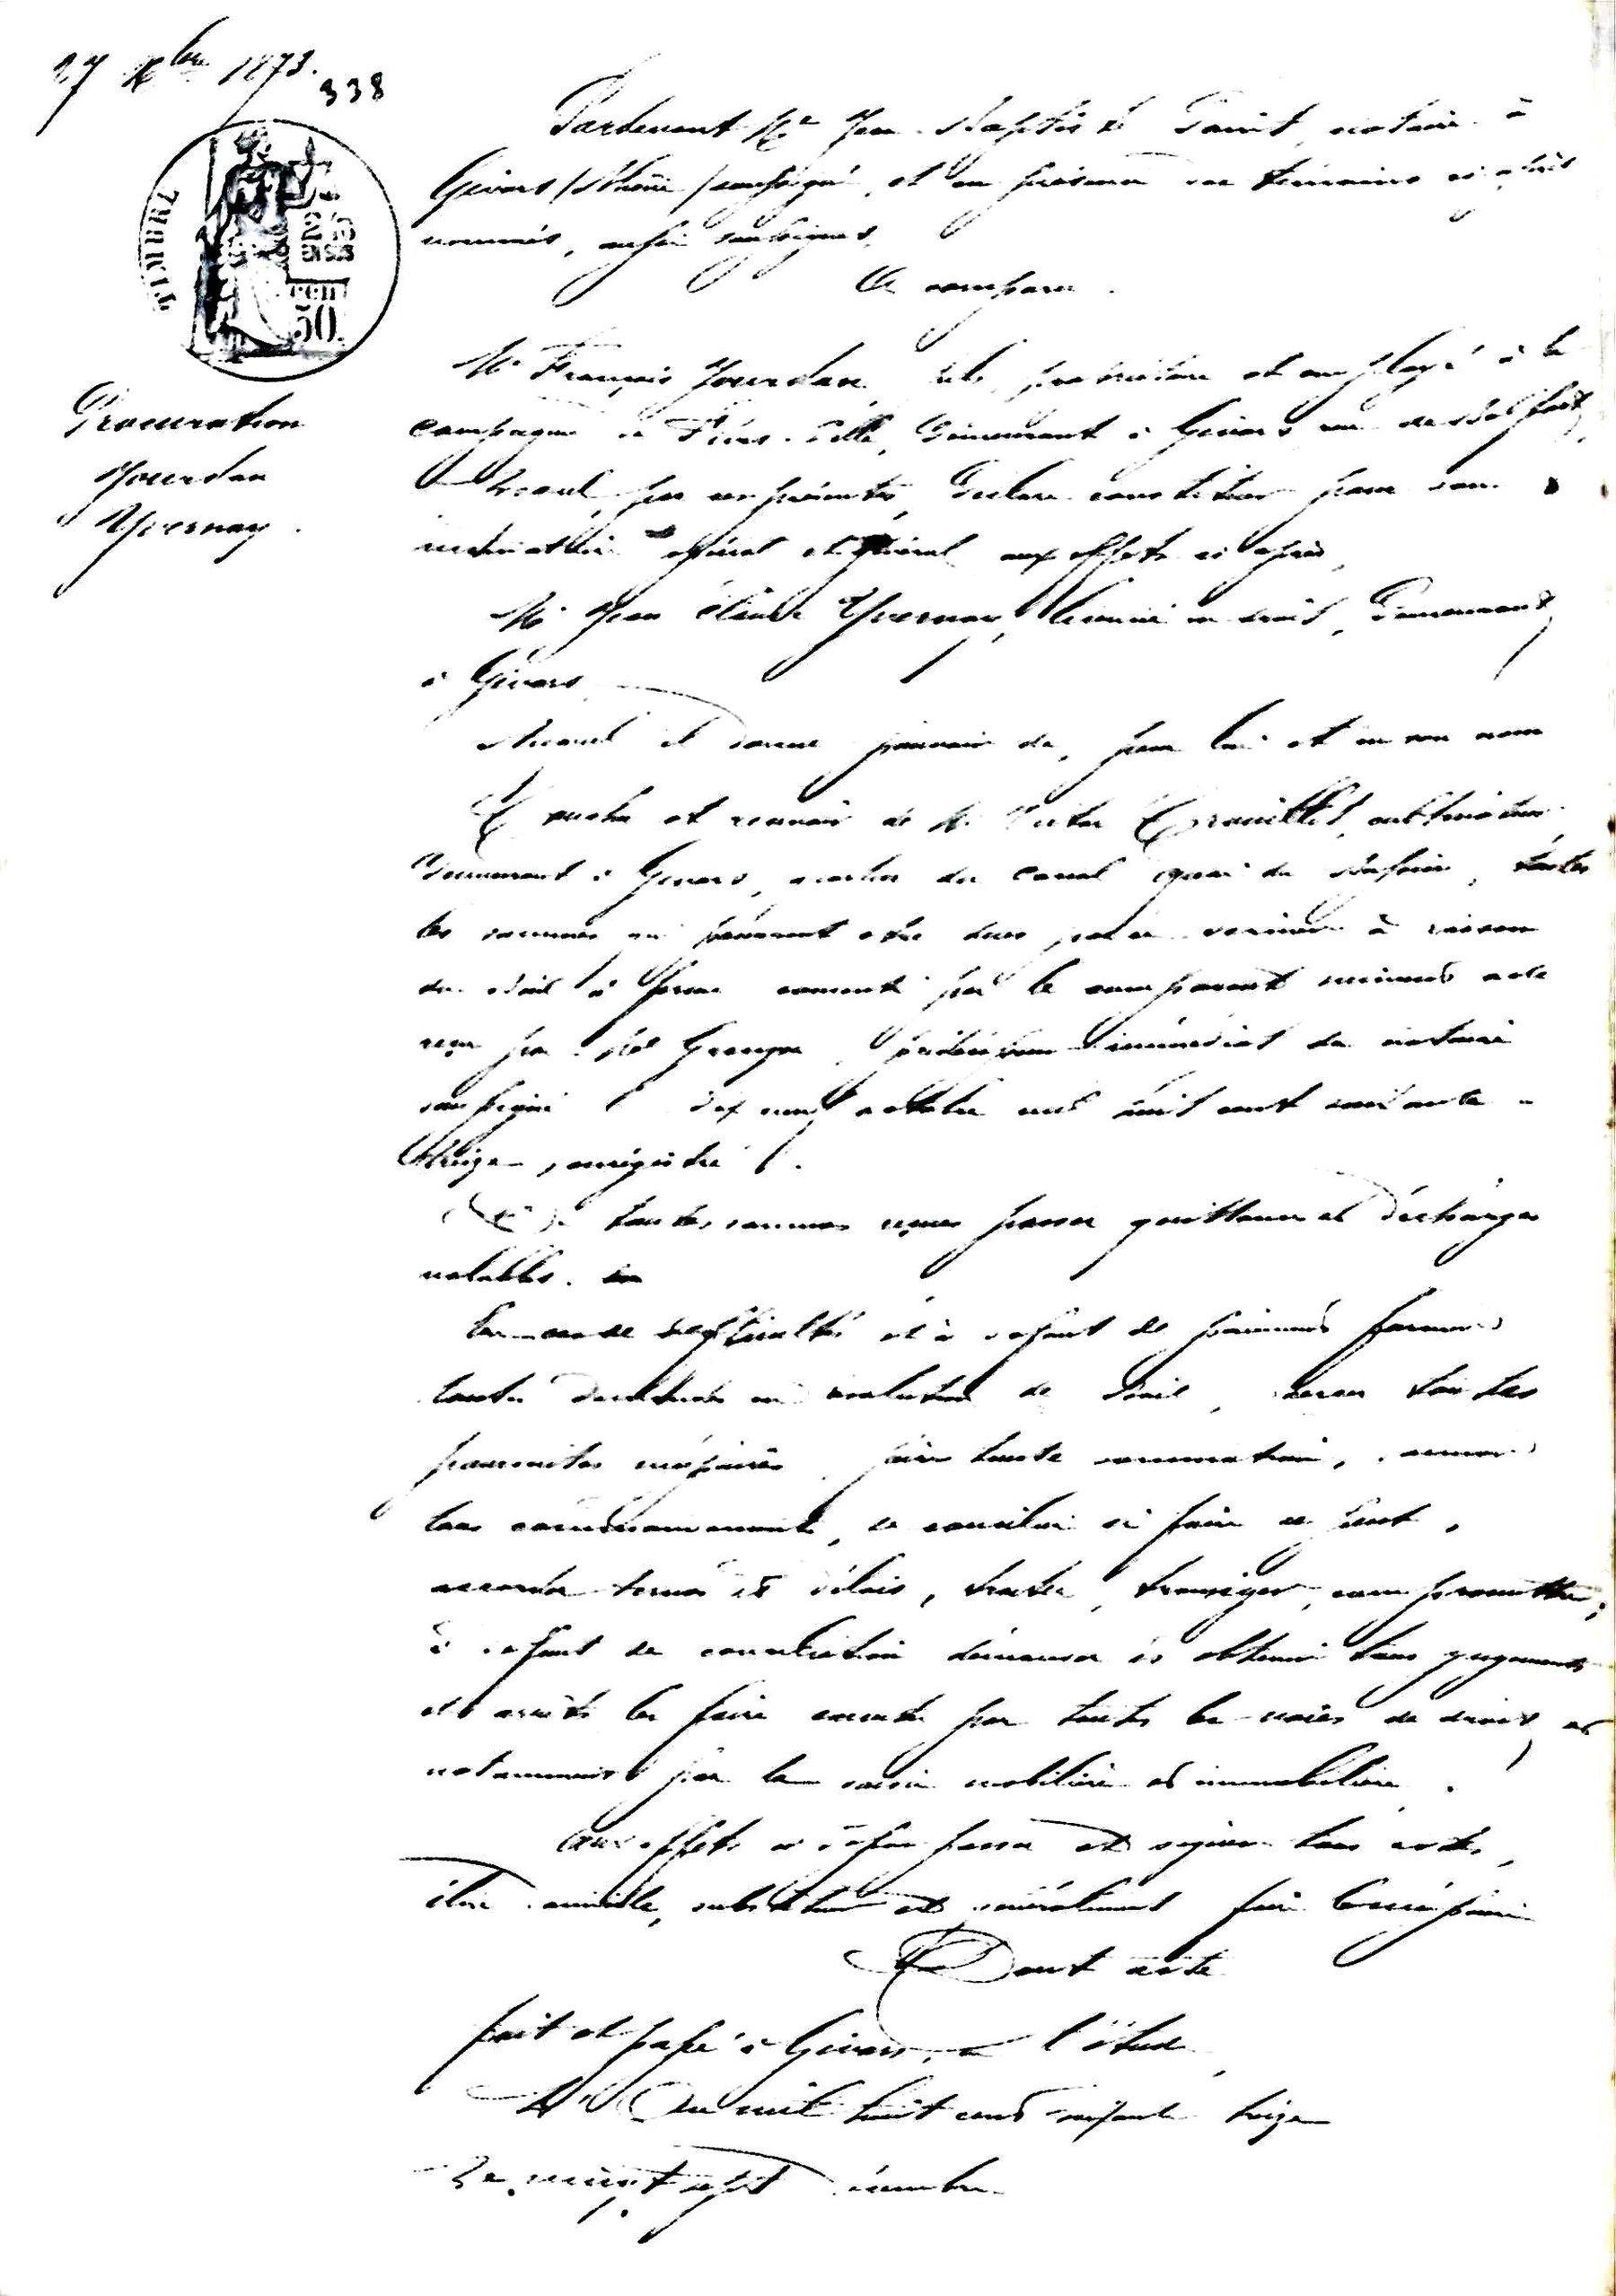 27 Xbre 1873.
338
TIMBRE
50
Procuration
Jourdan
Yvernay.
Pardevant Me Jean Baptiste notaire à
Givors (Rhône) soussigné, et en présence des témoins ci après
nommés, aussi soussignés,
A comparu.
Mr François Jourdan propriétaire et employé à la
compagnie demeurant à Givors rue de Belfort,
Lequel par ces présentes, déclare constituer pour son
mandataire spécial et général aux effets ci après,
Mr Jean Claude Yvernay, licencié en droit, demeurant
à Givors
Auquel il donne pouvoir de, pour lui et en son nom
Toucher et recevoir de M. Victor
demeurant à Givors, quartier du Canal quai du toutes
les sommes qui peuvent être dues par ce dernier à raison
du bail à ferme consenti par le comparant suivant acte
reçu par Me Granger prédécesseur immédiat du notaire
soussigné le dix neuf octobre mil huit cent soixante
treize, enregistré.
De toutes sommes reçues passer quittances et décharges
valables.
En cas de difficultés et à défaut de paiement former
toutes demandes en résiliation de bail, exercer toutes
poursuites nécessaires faire toute sommation,
tous commandements, se concilier si faire se peut,
accorder termes et délais, traiter, transiger, compromettre;
à défaut de conciliation demander et obtenir tous jugements
et arrêts les faire exécuter par toutes les voies de droit et
notamment par la saisie mobilière et immobilière.
Aux effets ci dessus passer et signer tous actes,
élire domicile, substituer et généralement faire le nécessaire
Dont acte
fait et passé à Givors, à l'étude
L'an mil huit cent soixante treize
Le vingt sept décembre